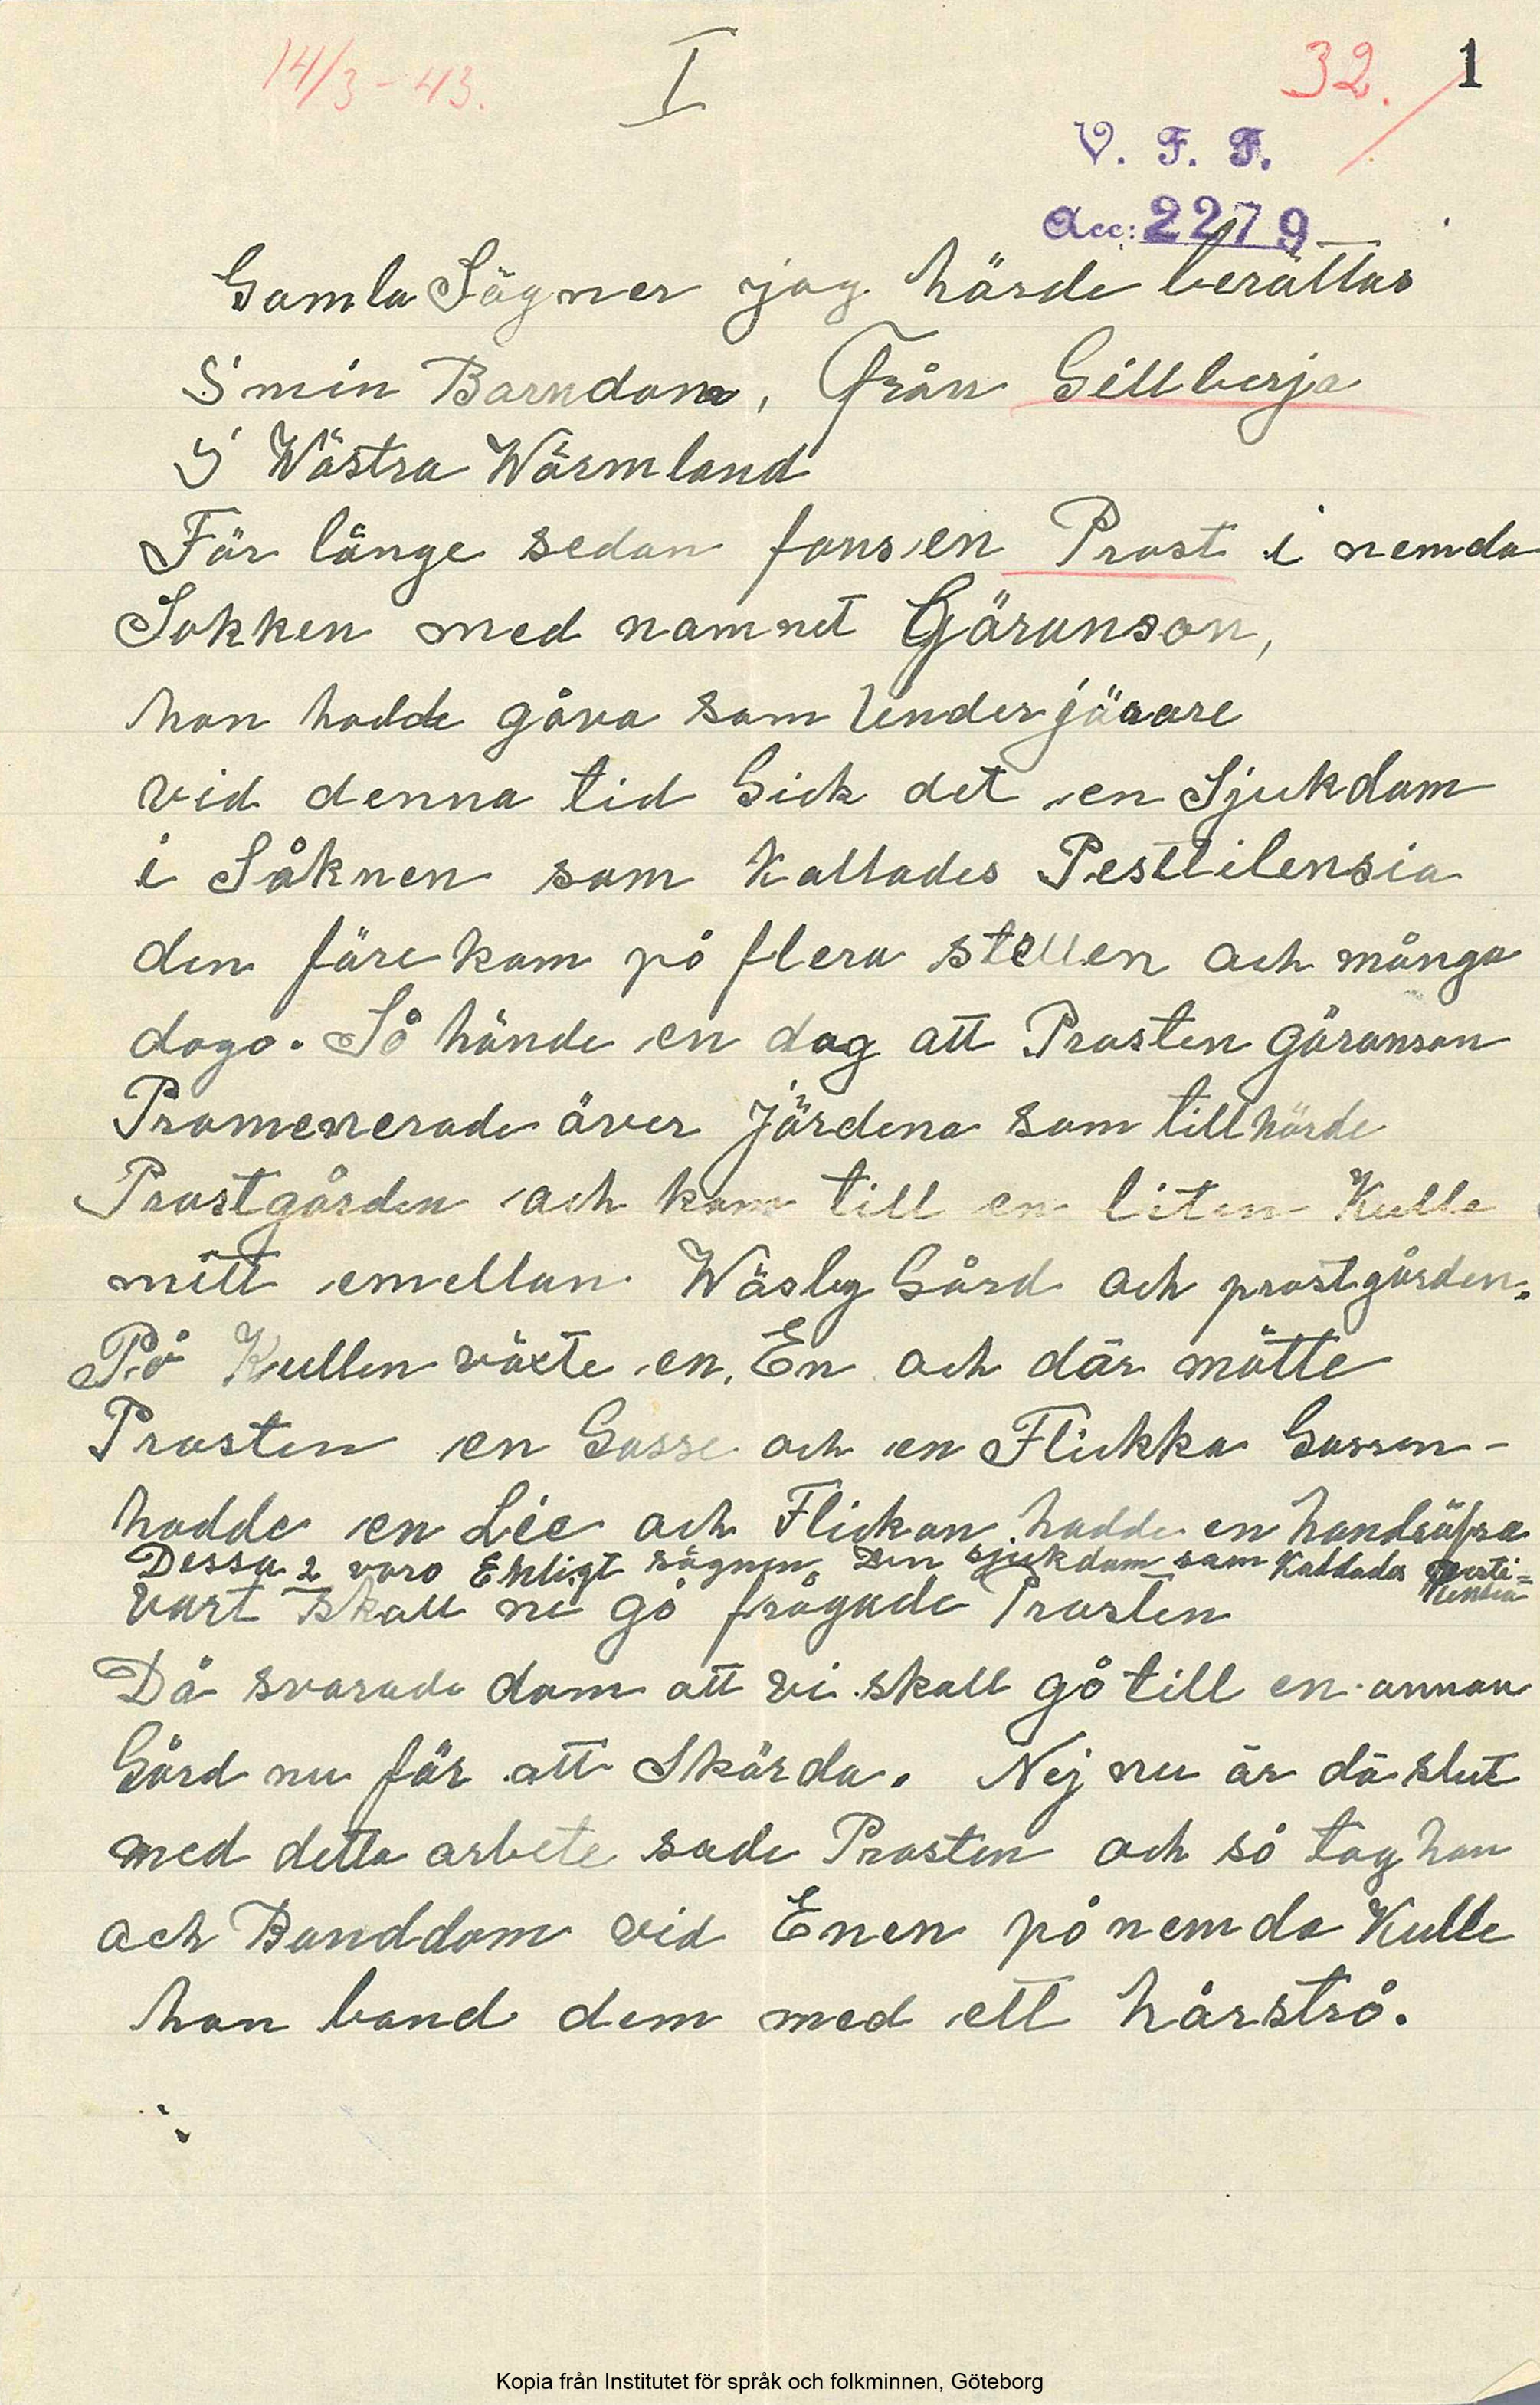 14/3-43.
I
32.
1
V. F. F.
Acc: 2279
Gamla Sägner jag hörde berättas
I min Barndom, Från Gillberja
I Wästra Wärmland
För länge sedan fans en Prost i nemda
Sokken med namnet Göranson,
han hadde gåva som Underjörare
vid denna tid Gick det en Sjukdom
i Såknen som Kallades Pesttilensia
den förekom på flera stellen och många
dogo. Så hände en dag att Prosten göranson
Promenerade över Jördena som tillhörde
Prostgården och kom till en liten Kulle
mitt emellan Wäsby Gård och prostgården.
På Kullen växte en En och där mötte
Prosten en Gosse och en Flickka Gossen
hadde en Lie och Flickan hadde en handräfsa
Dessa 2 voro Enligt sägnen Den sjukdom som Kallades Pesti=
lensia
Vart skall ni gå frågade Prosten
Då svarade dom att vi skall gå till en annan
Gård nu för att Skörda. Nej nu är dä slut
med detta arbete sade Prosten och så tog han
och Band dom vid Enen på nemda Kulle
han band dem med ett hårstrå.
Kopia från Institutet för språk och folkminnen, Göteborg